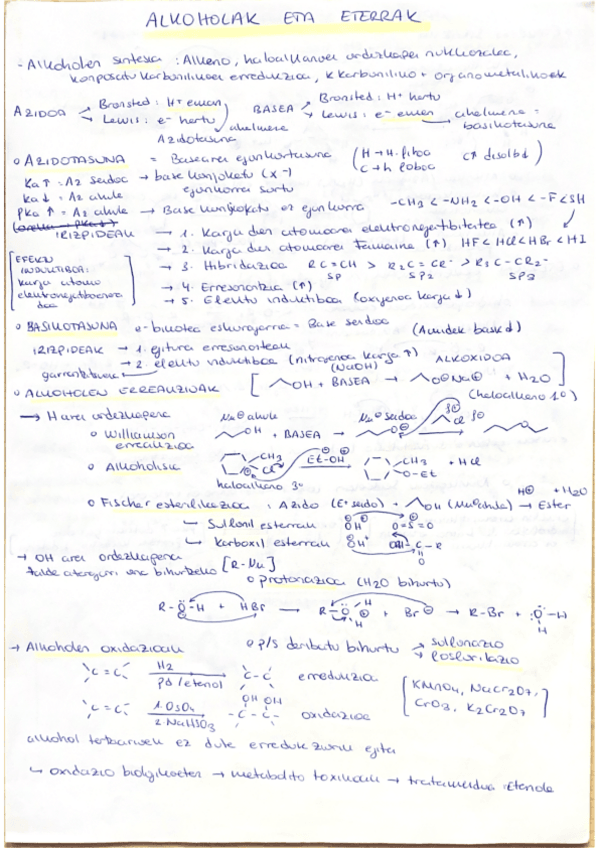 ALKOHOLAK ETA ETERRAK
- Alkoholen sintesia : Alkeno, haloalkanoei ordezkapen nukleozalea,
konposatu karbonilikoei erredukzioa, k karboniliko + organometalikoek
AZIDOA Bronsted : H+ eman BASEA Bronsted : H+ hartu
Lewis : e- hartu Lewis : e- eman ahalmena =
ahalmena basikotasuna
Azidotasuna
o AZIDOTASUNA = Basearen egonkortasuna (H → H. giboa C↑ disolb↓)
Ka ↑ = Az sendoa → base konjokatu (x-)
Ka ↓ = Az ahula egonkorra sortu
pKa ↑ = Az ahula → Base konjokatu ez egonkorra -CH3 < -NH2 < -OH < -F < SH
IRIZPIDEAK → 1. Karga duen atomoaren elektronegatibitatea (↑)
→ 2. Karga duen atomoaren tamaina (↑) HF < HCl < HBr < HI
[EFEKTU INDUKTIBOA: karga atomo elektronegatiboenera doa]
→ 3. Hibridazioa RC≡CH > R2C=CR- > R3C-CR2-
SP SP2 SP3
→ 4. Erresonantzia (↑)
→ 5. Efektu induktiboa (oxigenoa karga ↓)
o BASIKOTASUNA e- bikotea eskuragarria = Base sendoa (Amidek bask ↓)
IRIZPIDEAK → 1. egitura erresonanteak
→ 2. efektu induktiboa (nitrogenoa karga ↑) ALKOXIDOA
garrantzitsuena (NaOH)
o ALKOHOLEN ERREAKZIOAK [ OH + BASEA → O⊖Na⊕ + H2O ]
(haloalkano 1º)
→ H aren ordezkapena Nu⊖ ahula Nu⊖ sendoa
o Williamson erreakzioa OH + BASEA → O⊖ Cl → O
o Alkoholisia CH3 Cl Et-OH → CH3 O-Et + HCl
haloalkano 3º
o Fischer esterifikazioa : Azido (E+ sendo) + OH (Nu ahula) → Ester + H2O
Sulfonil esterrak OH O=S=O
Karboxil esterrak OH+ OH-C-R
O
→ OH aren ordezkapena
talde ateragarri ona bihurtzeko [R-Nu]
o protonazioa (H2O bihurtu)
R-O-H + HBr → R-O H H + Br⊖ → R-Br + O-H
H
→ Alkoholen oxidazioak o p/S deribatu bihurtu → sulfonazio
→ fosforilazio
C=C H2 Pd/etanol C-C erredukzioa [KMnO4, Na2Cr2O7,
CrO3, K2Cr2O7]
C=C 1. OsO4 2. NaHSO3 OH OH -C-C- oxidazioa
alkohol tertziarioek ez dute erredukziorik egiten
↳ oxidazio biologikoetan → metabolito toxikoak → tratamendua : Etanola